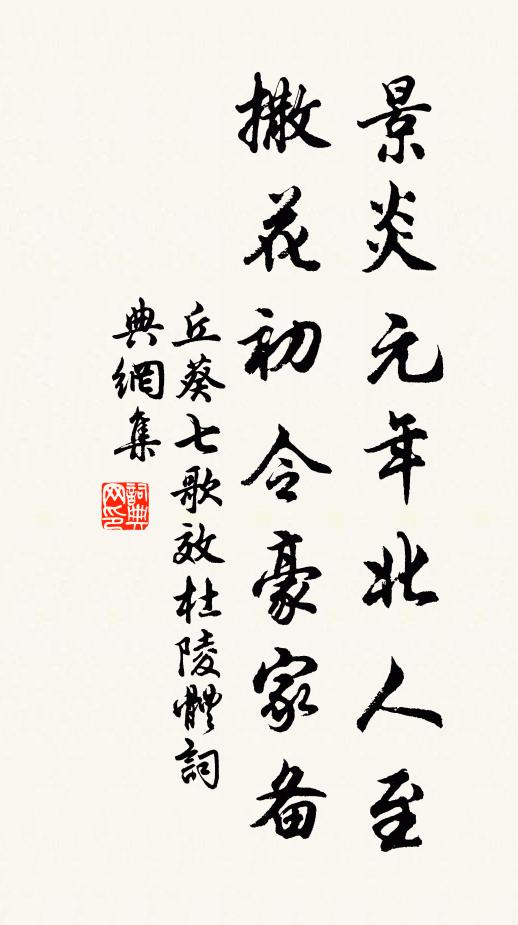 景炎元年北人至
撒花初令豪家备
丘葵七歌效杜陵體詞
典網集
詞典网印